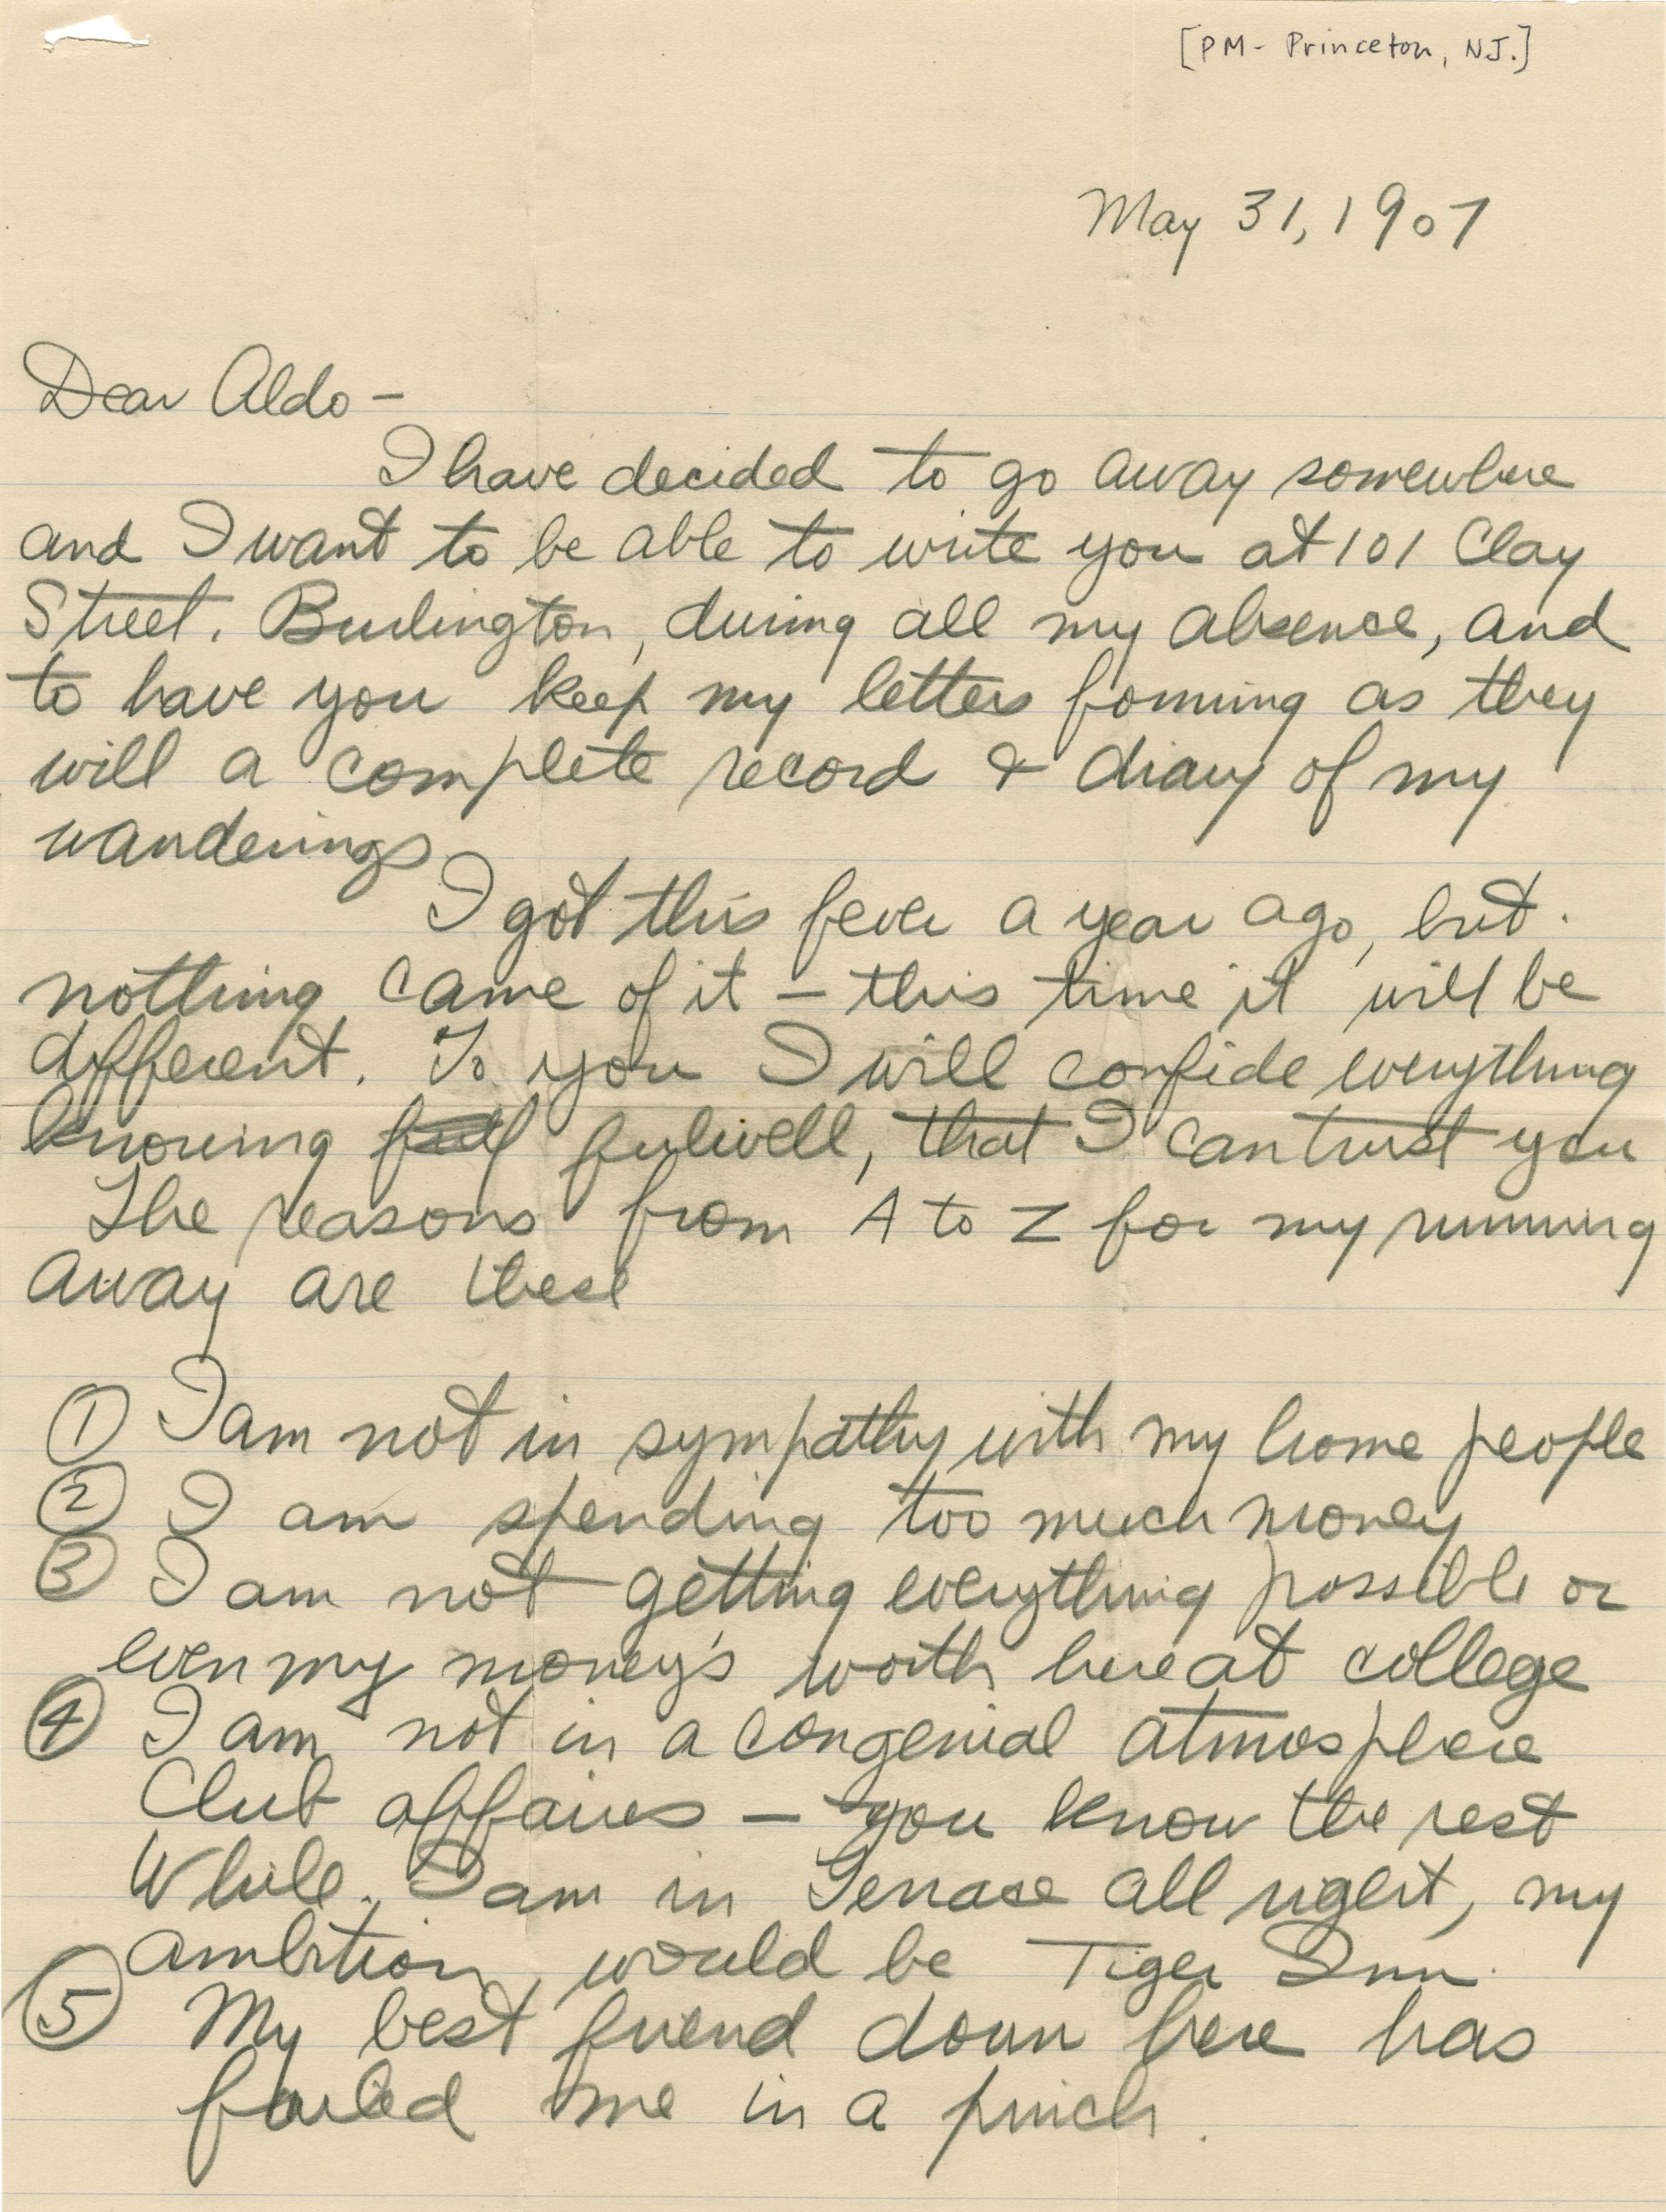 [PM- Princeton, NJ.]
May 31, 1907
Dear Aldo –
I have decided to go away somewhere
and I want to be able to write you at 101 Clay
Street. Burlington, during all my absence, and
to have you keep my letters forming as they
will a complete record & diary of my
wanderings
I got this fever a year ago, but
nothing came of it – this time it will be
different. To you I will confide everything
knowing full fulwell, that I can trust you
The reasons from A to Z for my running
away are these
① I am not in sympathy with my home people
② I am spending too much money
③ I am not getting everything possible or
even my money's worth here at college
④ I am not in a congenial atmosphere
Club affaires – you know the rest
While I am in Terrace all right, my
ambition, would be Tiger Inn.
⑤ My best friend down here has
failed me in a pinch.